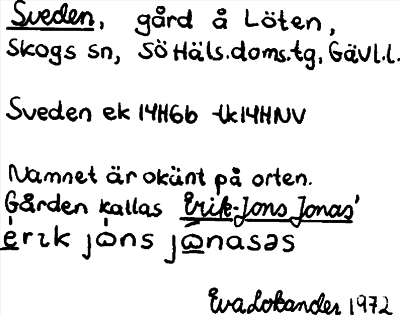 Sveden, gård å Löten,
Skogs sn, Sö Häls.doms.tg, Gävl.l.
Sveden ek 14HGb tk 14HNV
Namnet är okänt på orten.
Gården kallas Erik-Jons Jonas'
erɩk jòns jònasəs
Eva Lobander 1972